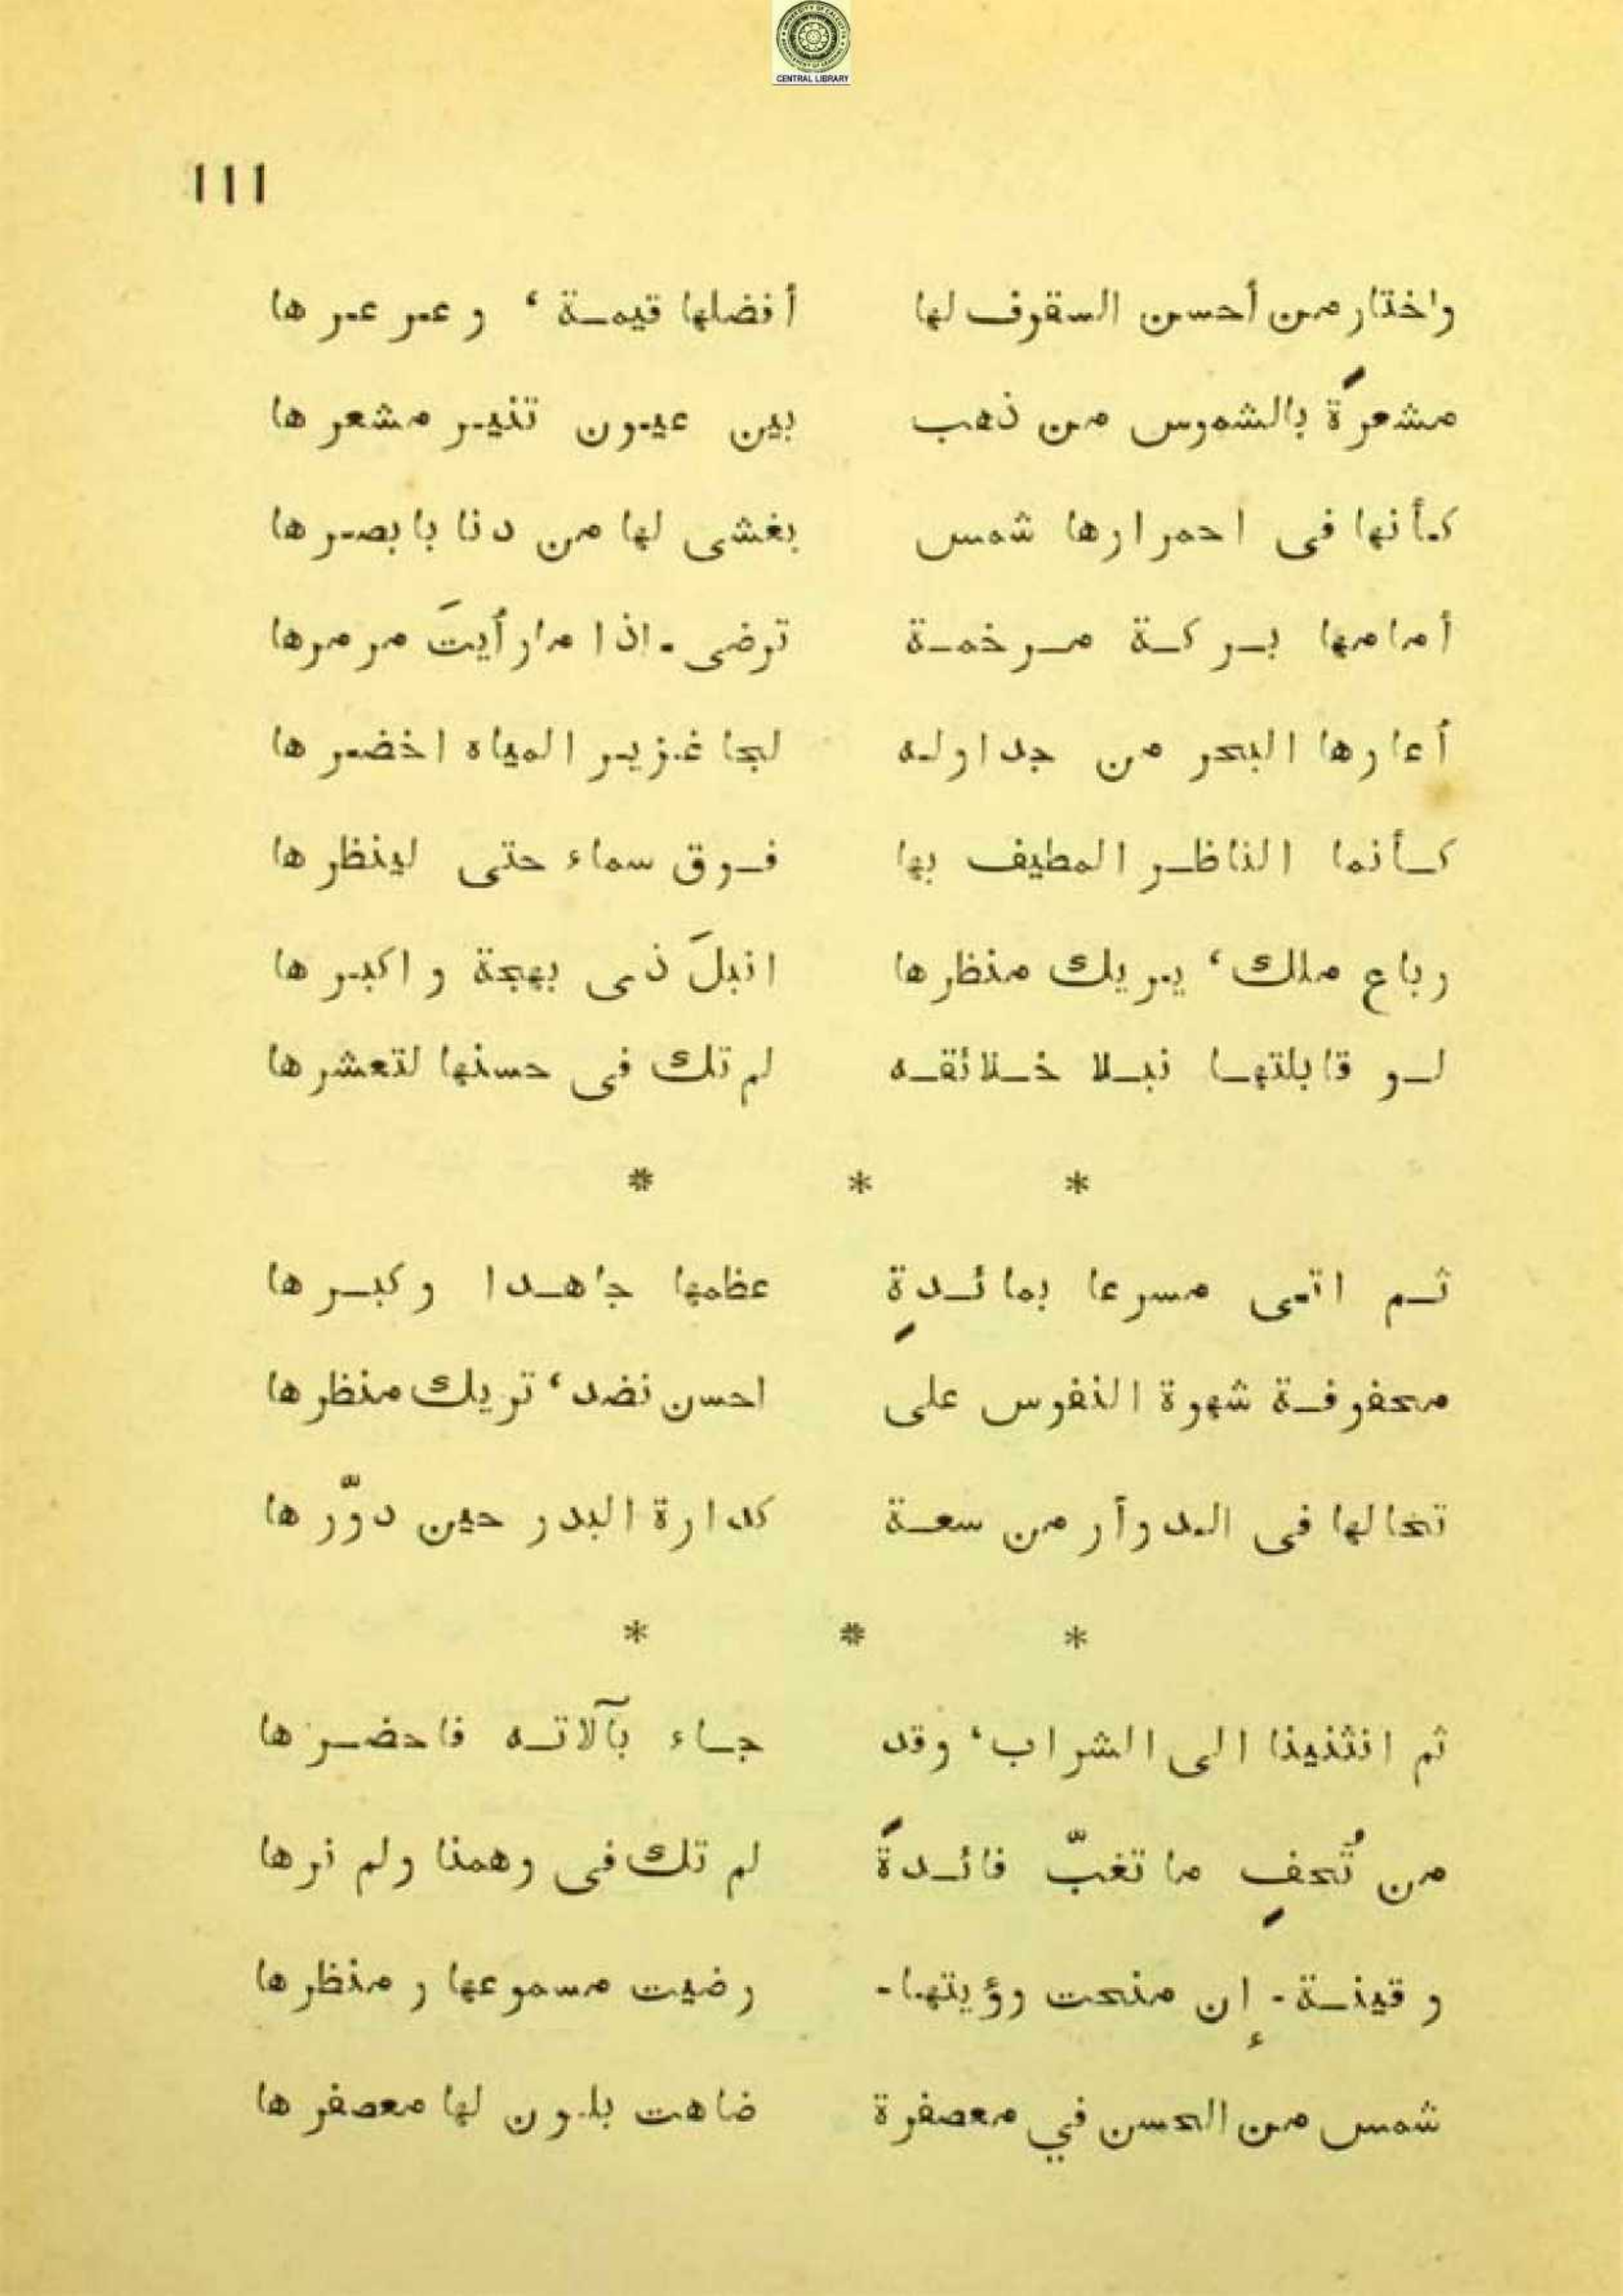 CENTRAL LIBRARY
١١١
واختار من أحسن السقوف لها أفضلها قيمة ، وعرعرها
مشعرةً بالشموس من ذهب بين عيون تنير مشعرها
كأنها فى احمرارها شمس بغشى لها من دنا بابصرها
أمامها بركة مرخمة ترضى - اذا ما رأيتَ مرمرها
أعارها البحر من جداوله لجا غزير المياه اخضرها
كأنما الناظر المطيف بها فوق سماء حتى لينظرها
رباع ملك ، يريك منظرها انبلَ ذى بهجة واكبرها
لو قابلتها نبلا خلائقه لم تك فى حسنها لتعشرها
* * *
ثم اتى مسرعا بمائدةٍ عظمها جاهدا وكبرها
محفوفة شهوة النفوس على احسن نضد ، تريك منظرها
تخالها فى الدوأر من سعة كدارة البدر حين دوّرها
* * *
ثم انثنينا الى الشراب ، وقد جاء بآلاته فاحضرها
من تُحفٍ ما تغبّ فائدةً لم تك فى وهمنا ولم نرها
وقينة - إن منحت رؤيتها - رضيت مسموعها ومنظرها
شمس من الحسن في معصفرة ضاهت بلون لها معصفرها